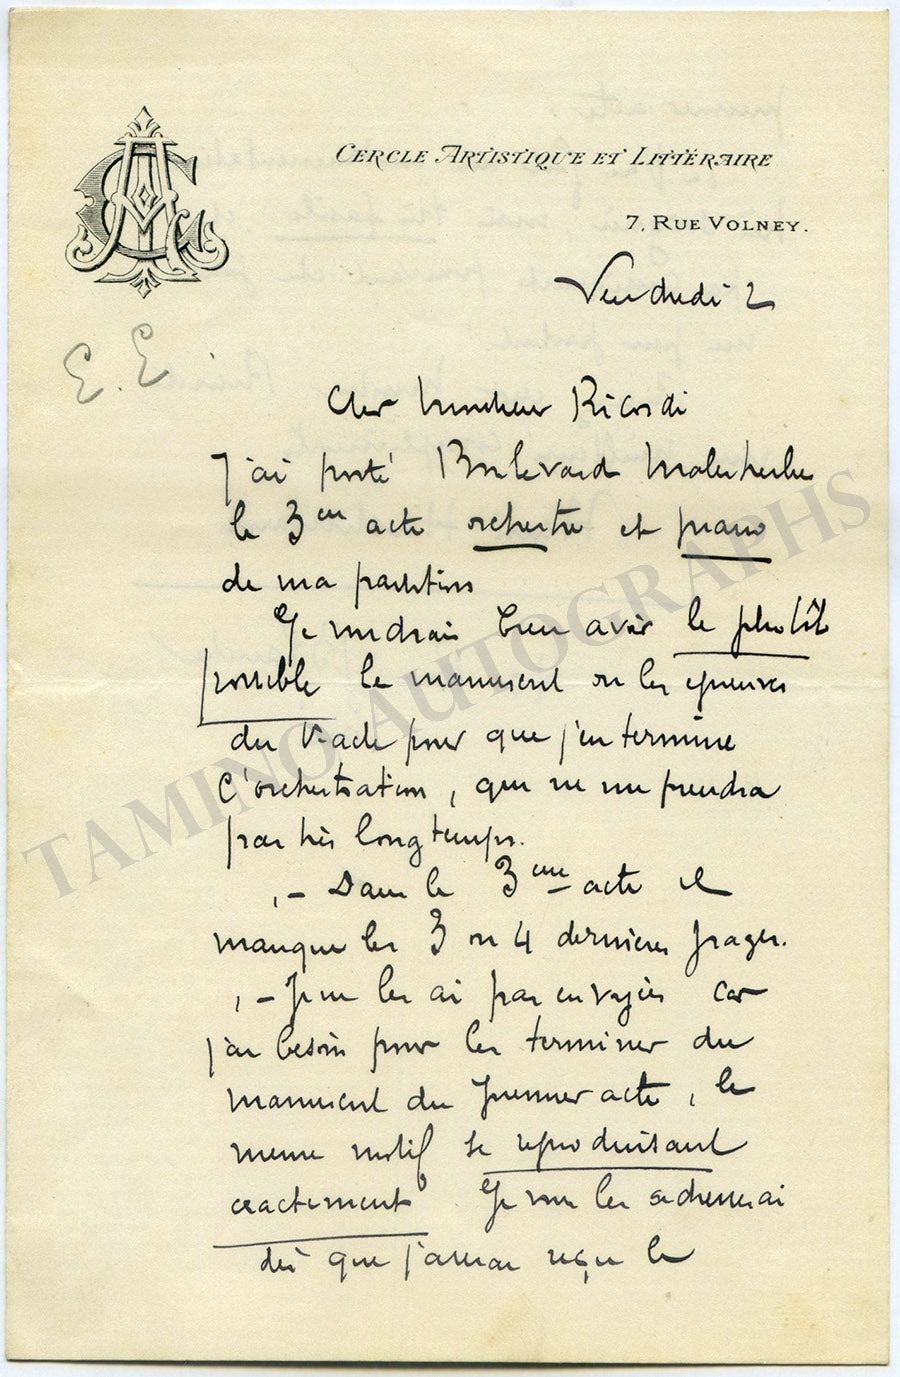 CERCLE ARTISTIQUE ET LITTÉRAIRE
7, RUE VOLNEY.
Vendredi 2
E. E.
Cher Monsieur Ricordi
J'ai porté Boulevard Malesherbes
le 3eme acte orchestre et piano
de ma partition
Je voudrais bien avoir le plutôt
possible le manuscrit ou les épreuves
du acte pour que j'en termine
l'orchestration, qui ne me prendra
pas très longtemps.
,- Dans le 3eme acte il
manque les 3 ou 4 dernières pages.
,- Je ne les ai pas envoyées car
j'ai besoin pour les terminer du
manuscrit du premier acte, le
meme motif se reproduisant
exactement Je vous les adresserai
dès que j'aurai reçu le
TAMINO AUTOGRAPHS